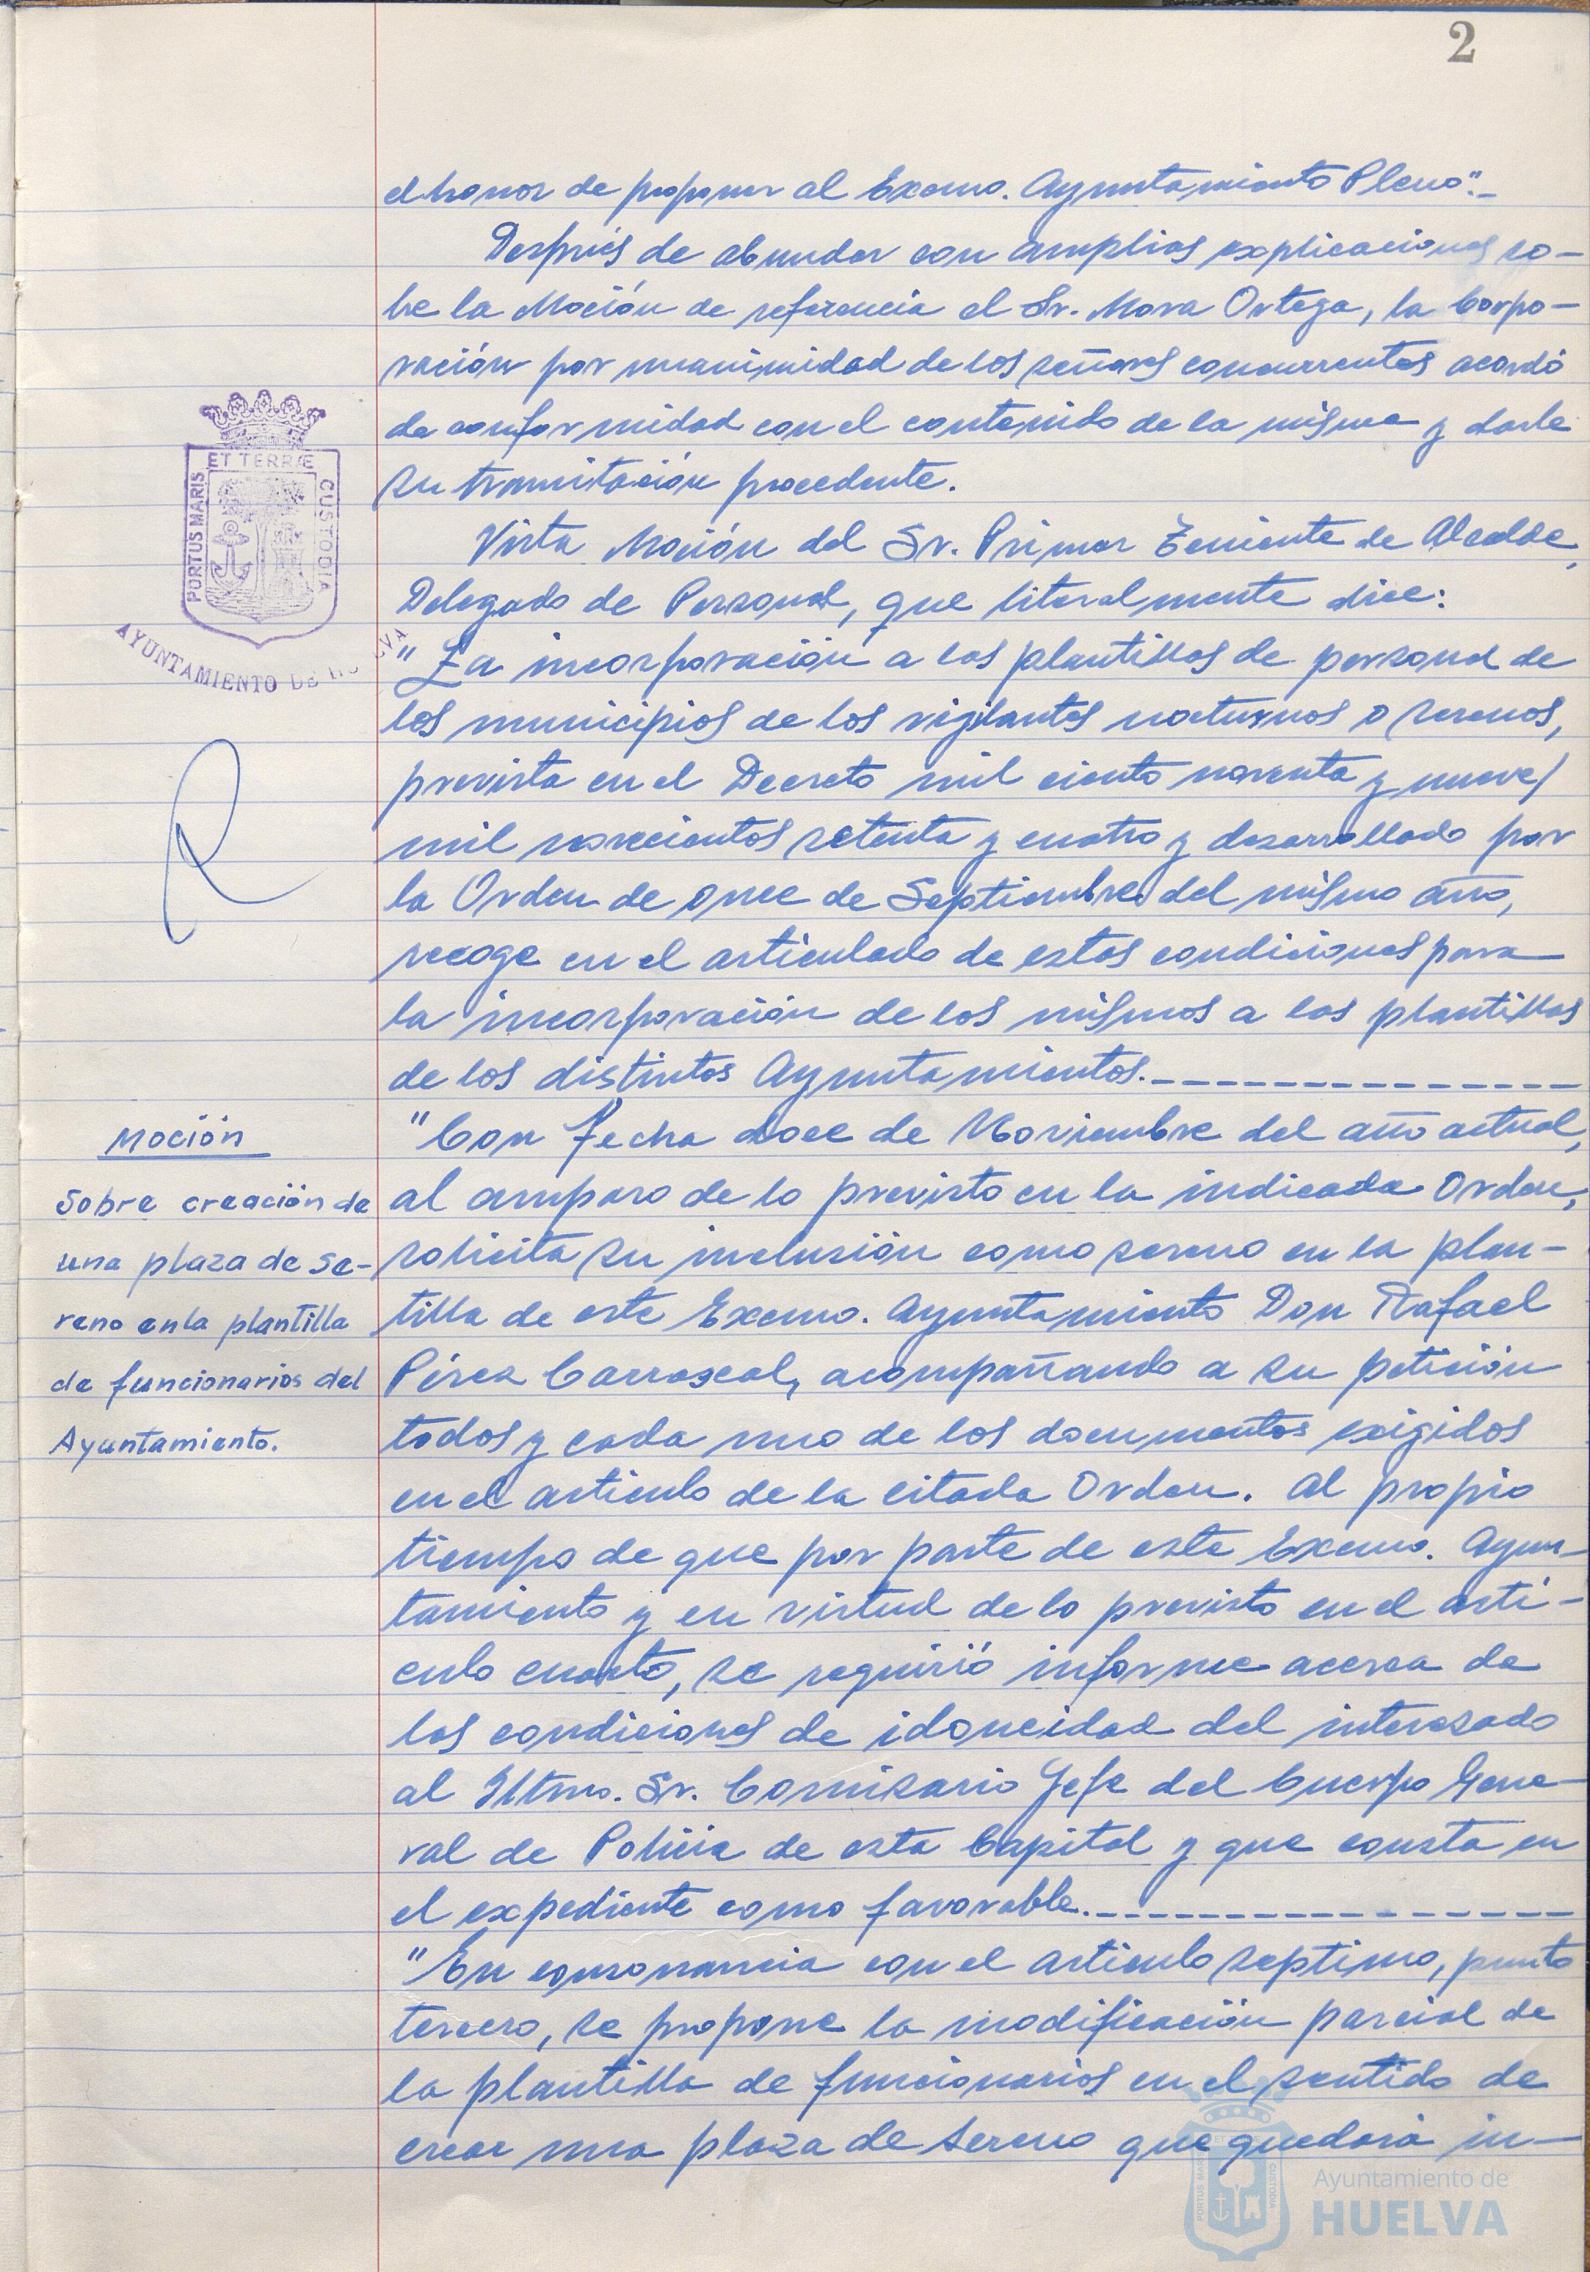 2
el honor de proponer al Excmo. Ayuntamiento Pleno".-
Después de abundar con amplias explicaciones so-
bre la Moción de referencia el Sr. Mora Ortega, la Corpo-
ración por unanimidad de los señores concurrentes acordó
de conformidad con el contenido de la misma y darle
su tramitación procedente.
Vista Moción del Sr. Primer Teniente de Alcalde,
Delegado de Personal, que literalmente dice:
"La incorporación a las plantillas de personal de
los municipios de los vigilantes nocturnos o serenos,
prevista en el Decreto mil ciento noventa y nueve/
mil novecientos setenta y cuatro y desarrollado por
la Orden de once de Septiembre del mismo año,
recoge en el articulado de estas condiciones para
la incorporación de los mismos a las plantillas
de los distintos Ayuntamientos.
"Con fecha doce de Noviembre del año actual,
al amparo de lo previsto en la indicada Orden,
solicita su inclusión como sereno en la plan-
tilla de este Excmo. Ayuntamiento Don Rafael
Pérez Carrascal, acompañando a su petición
todos y cada uno de los documentos exigidos
en el articulo de la citada Orden. Al propio
tiempo de que por parte de este Excmo. Ayun-
tamiento y en virtud de lo previsto en el arti-
culo cuarto, se requirió informe acerca de
las condiciones de idoneidad del interesado
al Iltmo. Sr. Comisario Jefe del Cuerpo Gene-
ral de Policia de esta Capital y que consta en
el expediente como favorable.
"En consonancia con el articulo septimo, punto
tercero, se propone la modificación parcial de
la plantilla de funcionarios en el sentido de
crear una plaza de Sereno que quedará in-
PORTUS MARIS
ET TERRÆ
CUSTODIA
AYUNTAMIENTO DE HUELVA
Moción
Sobre creación de
una plaza de Se-
reno en la plantilla
de funcionarios del
Ayuntamiento.
Ayuntamiento de
HUELVA